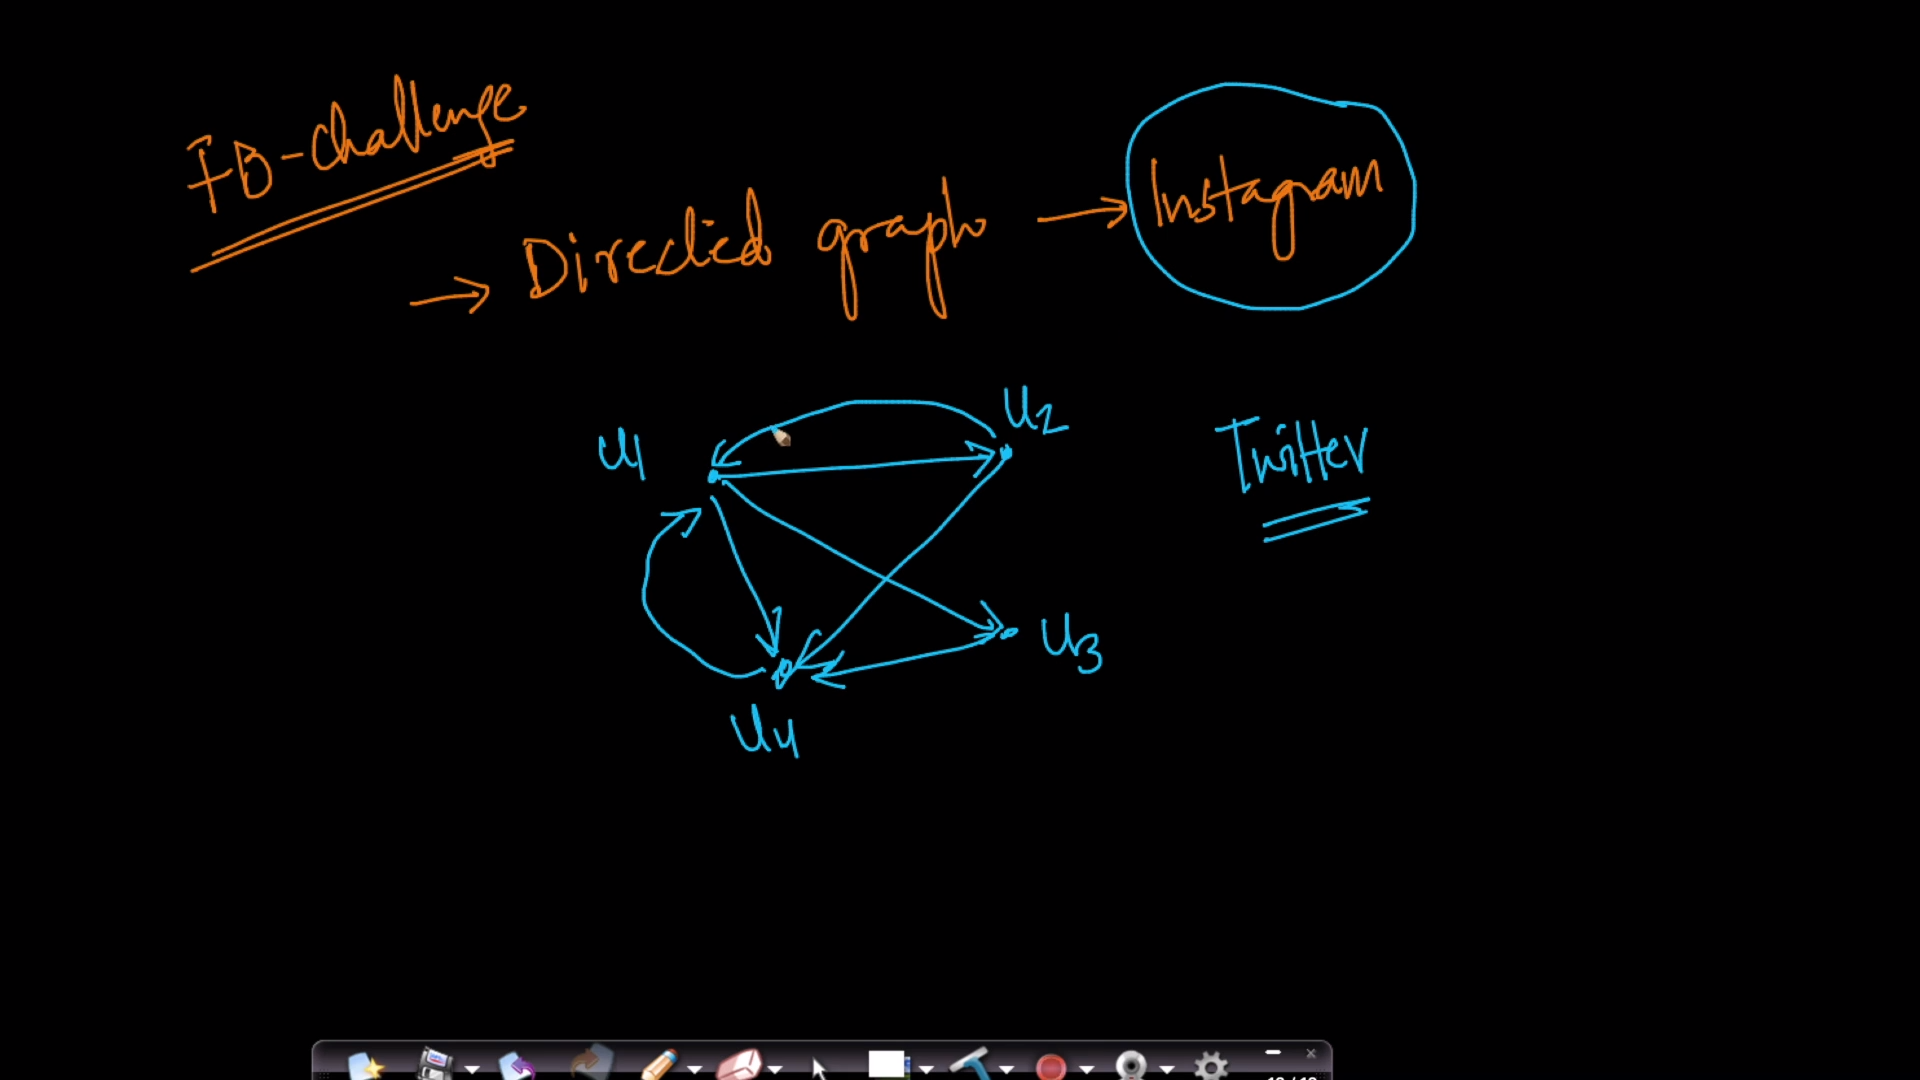 FB-challenge
→ Directed graph → Instagram
U1
U2
Twitter
U3
U4